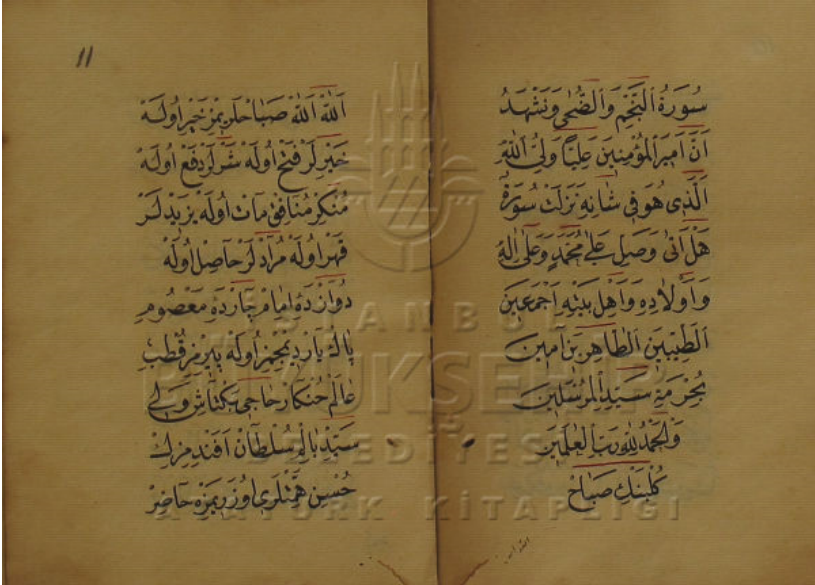 سُورَةُ اَلنَّجْمِ وَالضُّحٰى وَنَشْهَدُ
اَنَّ اَمِيرَ الْمُؤْمِنِينَ عَلِيًّا وَلِيُّ اللّٰهِ
الَّذِى هُوَ فِى شَانِهِ نَزَلَتْ سُورَةُ
هَلْ اَتٰى وَصَلِّ عَلٰى مُحَمَّدٍ وَعَلٰى اٰلِهِ
وَاَوْلَادِهِ وَاَهْلِ بَيْتِهِ اَجْمَعِينَ
اَلطَّيِّبِينَ الطَّاهِرِينَ اٰمِينَ
بِحُرْمَةِ سَيِّدِ الْمُرْسَلِينَ
وَالْحَمْدُ لِلّٰهِ رَبِّ الْعٰلَمِينَ
كُلْبَنْكِ صَبَاحْ
11
اَللّٰهْ اَللّٰهْ صَبَاحْلَرِيمِزْ خَيْرْ اُولَهْ
خَيْرْلَرْ فَتْحْ اُولَهْ شَرْلَرْ دَفْعْ اُولَهْ
مُنْكِرْ مُنَافِقْ مَاتْ اُولَهْ يَزِيدْلَرْ
قَهْرْ اُولَهْ مُرَادْلَرْ حَاصِلْ اُولَهْ
دُوَازْدَهْ اِمَامْ چَارْدَهْ مَعْصُومِ
پَاكْ يَارْدِيمْجِيمِزْ اُولَهْ پِيرِمِزْ قُطْبِ
عَالَمْ خُنْكَارْ حَاجِى بَكْتَاشِ وَلِى
سَيِّدْ بَالِمْ سُلْطَانْ اَفَنْدِمِزِكْ
حُسْنِ هِمَّتْلَرِى اُوزَرِيمِزَهْ حَاضِرْ
İSTANBUL
BÜYÜKŞEHİR
BELEDİYESİ
ATATÜRK KİTAPLIĞI